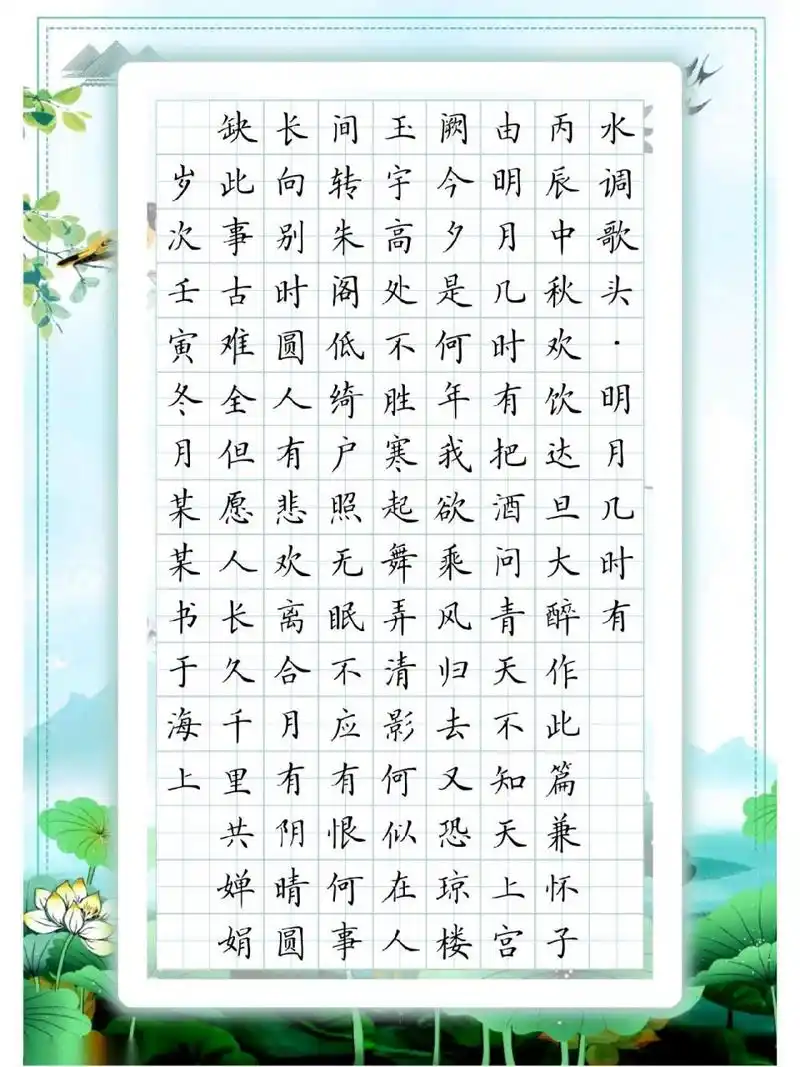 水调歌头·明月几时有
丙辰中秋欢饮达旦大醉作此篇兼怀子
由明月几时有把酒问青天不知天上宫
阙今夕是何年我欲乘风归去又恐琼楼
玉宇高处不胜寒起舞弄清影何似在人
间转朱阁低绮户照无眠不应有恨何事
长向别时圆人有悲欢离合月有阴晴圆
缺此事古难全但愿人长久千里共婵娟
岁次壬寅冬月某某书于海上